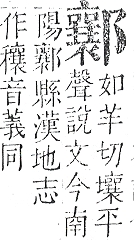 𨟚
如羊切壤平
聲說文今南
陽𨟚縣漢地志
作穰音義同